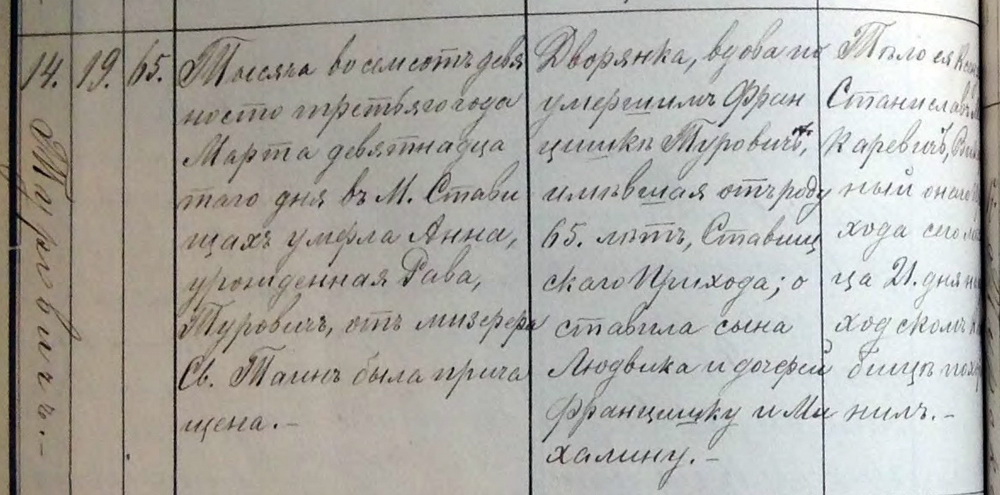 14.
19.
65.
Туровичъ.-
Тысяча восемсотъ девя
носто третьяго года
Марта девятнадца
таго дня въ М. Стави
щахъ умерла Анна,
урожденная Рава,
Туровичъ, от мизерере
Св. Таинъ была прича
щена.-
Дворянка, вдова по
умершимъ Фран
цишкѣ Туровичѣ,
имѣвшая отъ роду
65. лѣтъ, Ставищ
скаго Прихода; о
ставила сына
Людвика и дочерей
Францишку и Ми
халину.-
Тѣло ея Ксен
Станиславъ
Каревичъ, Вик
ный онаго При
хода сего мѣся
ца 21. дня на
ход скомъ
бищѣ похо
нилъ.-